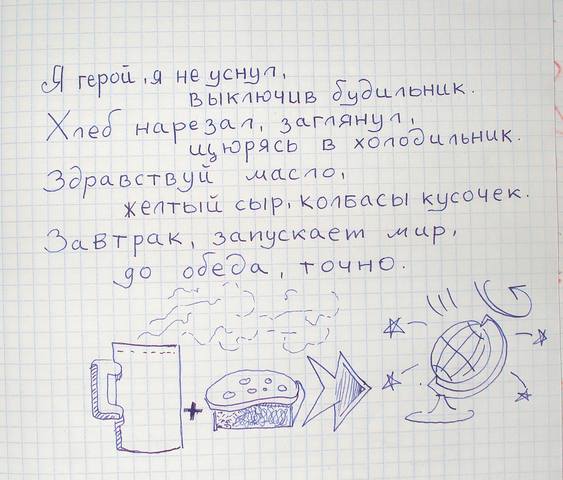 Я герой, я не уснул,
выключив будильник.
Хлеб нарезал, заглянул,
щюрясь в холодильник.
Здравствуй масло,
желтый сыр, колбасы кусочек.
Завтрак, запускает мир,
до обеда, точно.
+